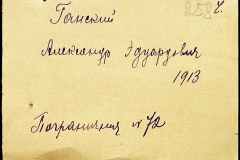 258 ч.
Ганский
Александр Эдуардович
1913
Пограничная № 72